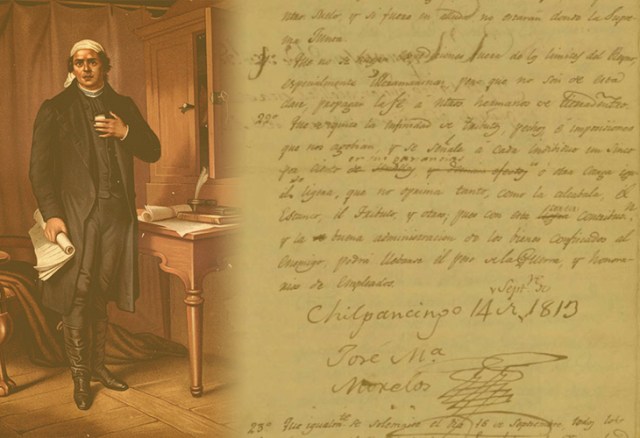 Suelo, y si no donde la Supre
ma Junta.
21º Que no se hagan expediciones fuera de los limites del Reyno,
especialmente Ultramarinas, pero que no son de esta
clase, propagar la fé a nuestros hermanos de tierradentro.
22º Que se quite la infinidad de tributos, pechos é imposiciones
que nos agobian, y se señale á cada individuo un cinco
en sus ganancias
por ciento ú otra carga igual
ligera, que no oprima tanto, como la alcabala, el
Estanco, el Tributo, y otros, pues con esta
y la buena administracion de los bienes confiscados al
Enemigo, podrá llevarse el peso de la Guerra, y honora-
rios de Empleados.
Septre de
Chilpancingo 14 de 1813
José Ma
Morelos
23º Que igualmte se solemnice el dia 16 de Septiembre, todos los